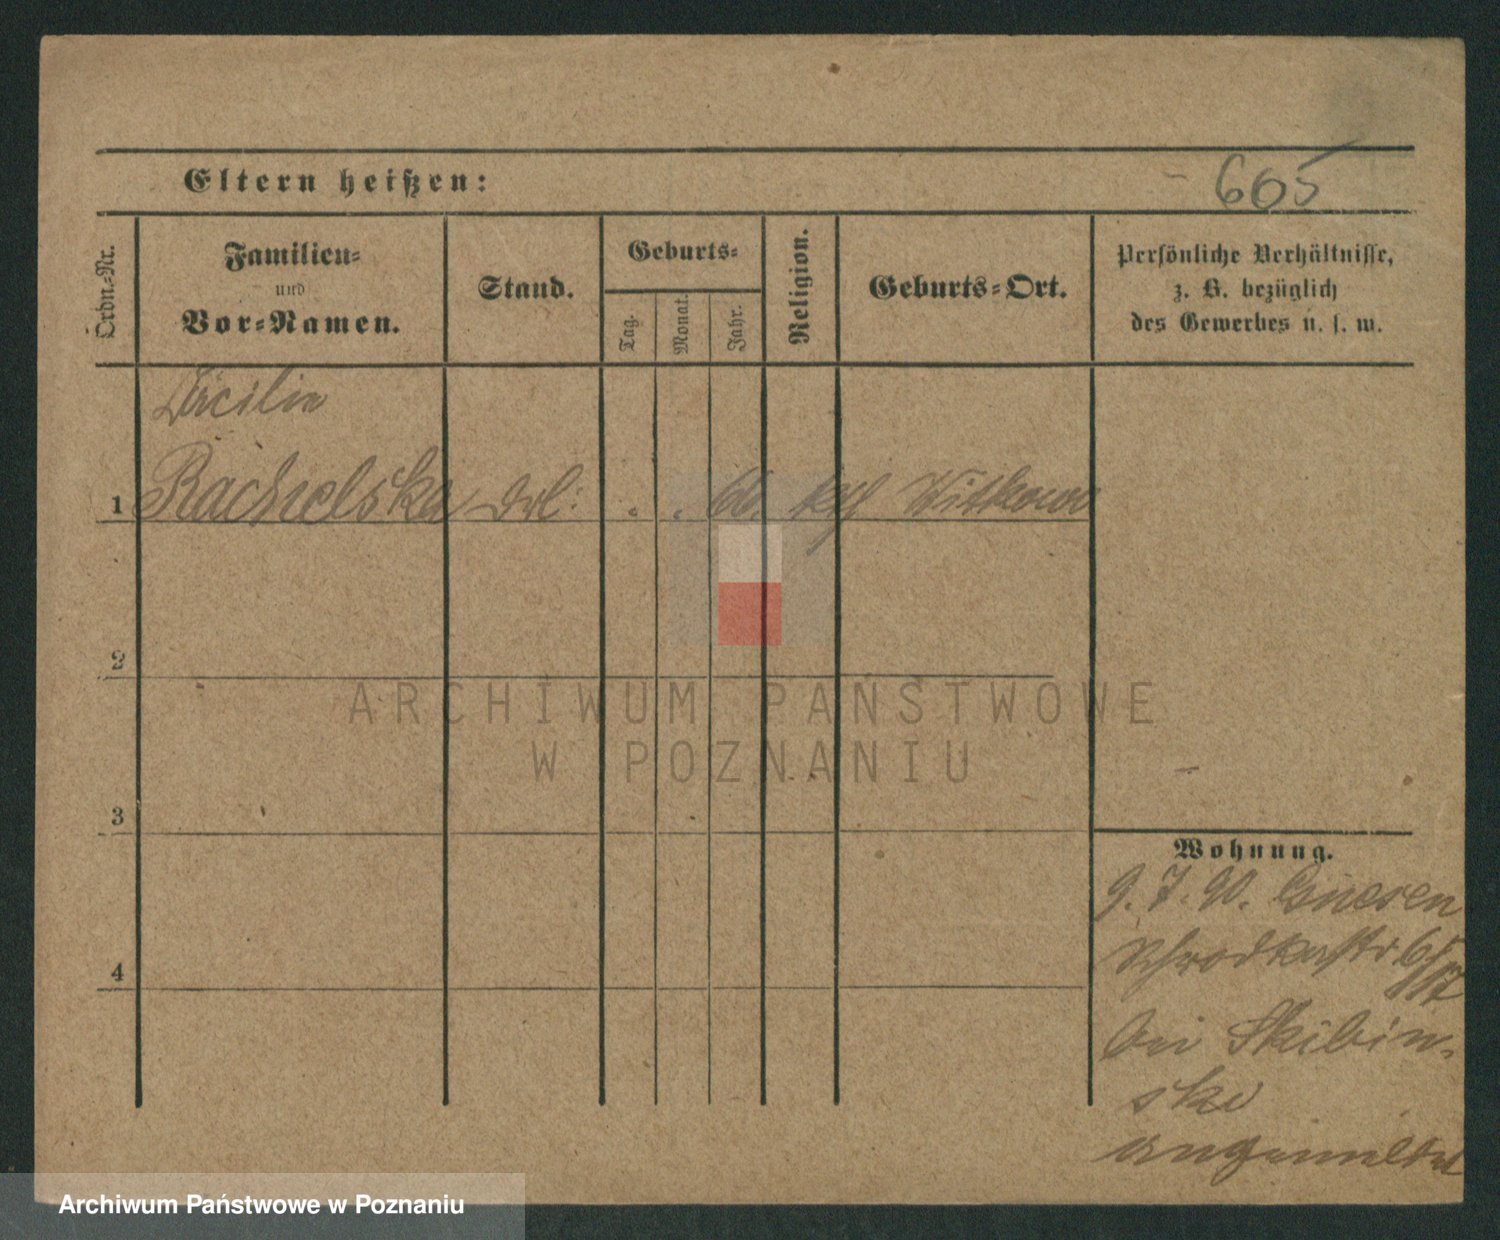 Eltern heißen:
605
Ordn.-Nr.
Familien-
und
Vor-Namen.
Stand.
Geburts-
Tag.
Monat.
Jahr.
Religion.
Geburts-Ort.
Persönliche Verhältnisse,
z. B. bezüglich
des Gewerbes u. s. w.
Cäcilie
1 Rachelska . . 66. kth Witkowo
2
3
4
Wohnung.
9. 7. 90. Gnesen
Schrodkastr 65
bei Skibin-
ska
angemeldet
ARCHIWUM PAŃSTWOWE
W POZNANIU
Archiwum Państwowe w Poznaniu